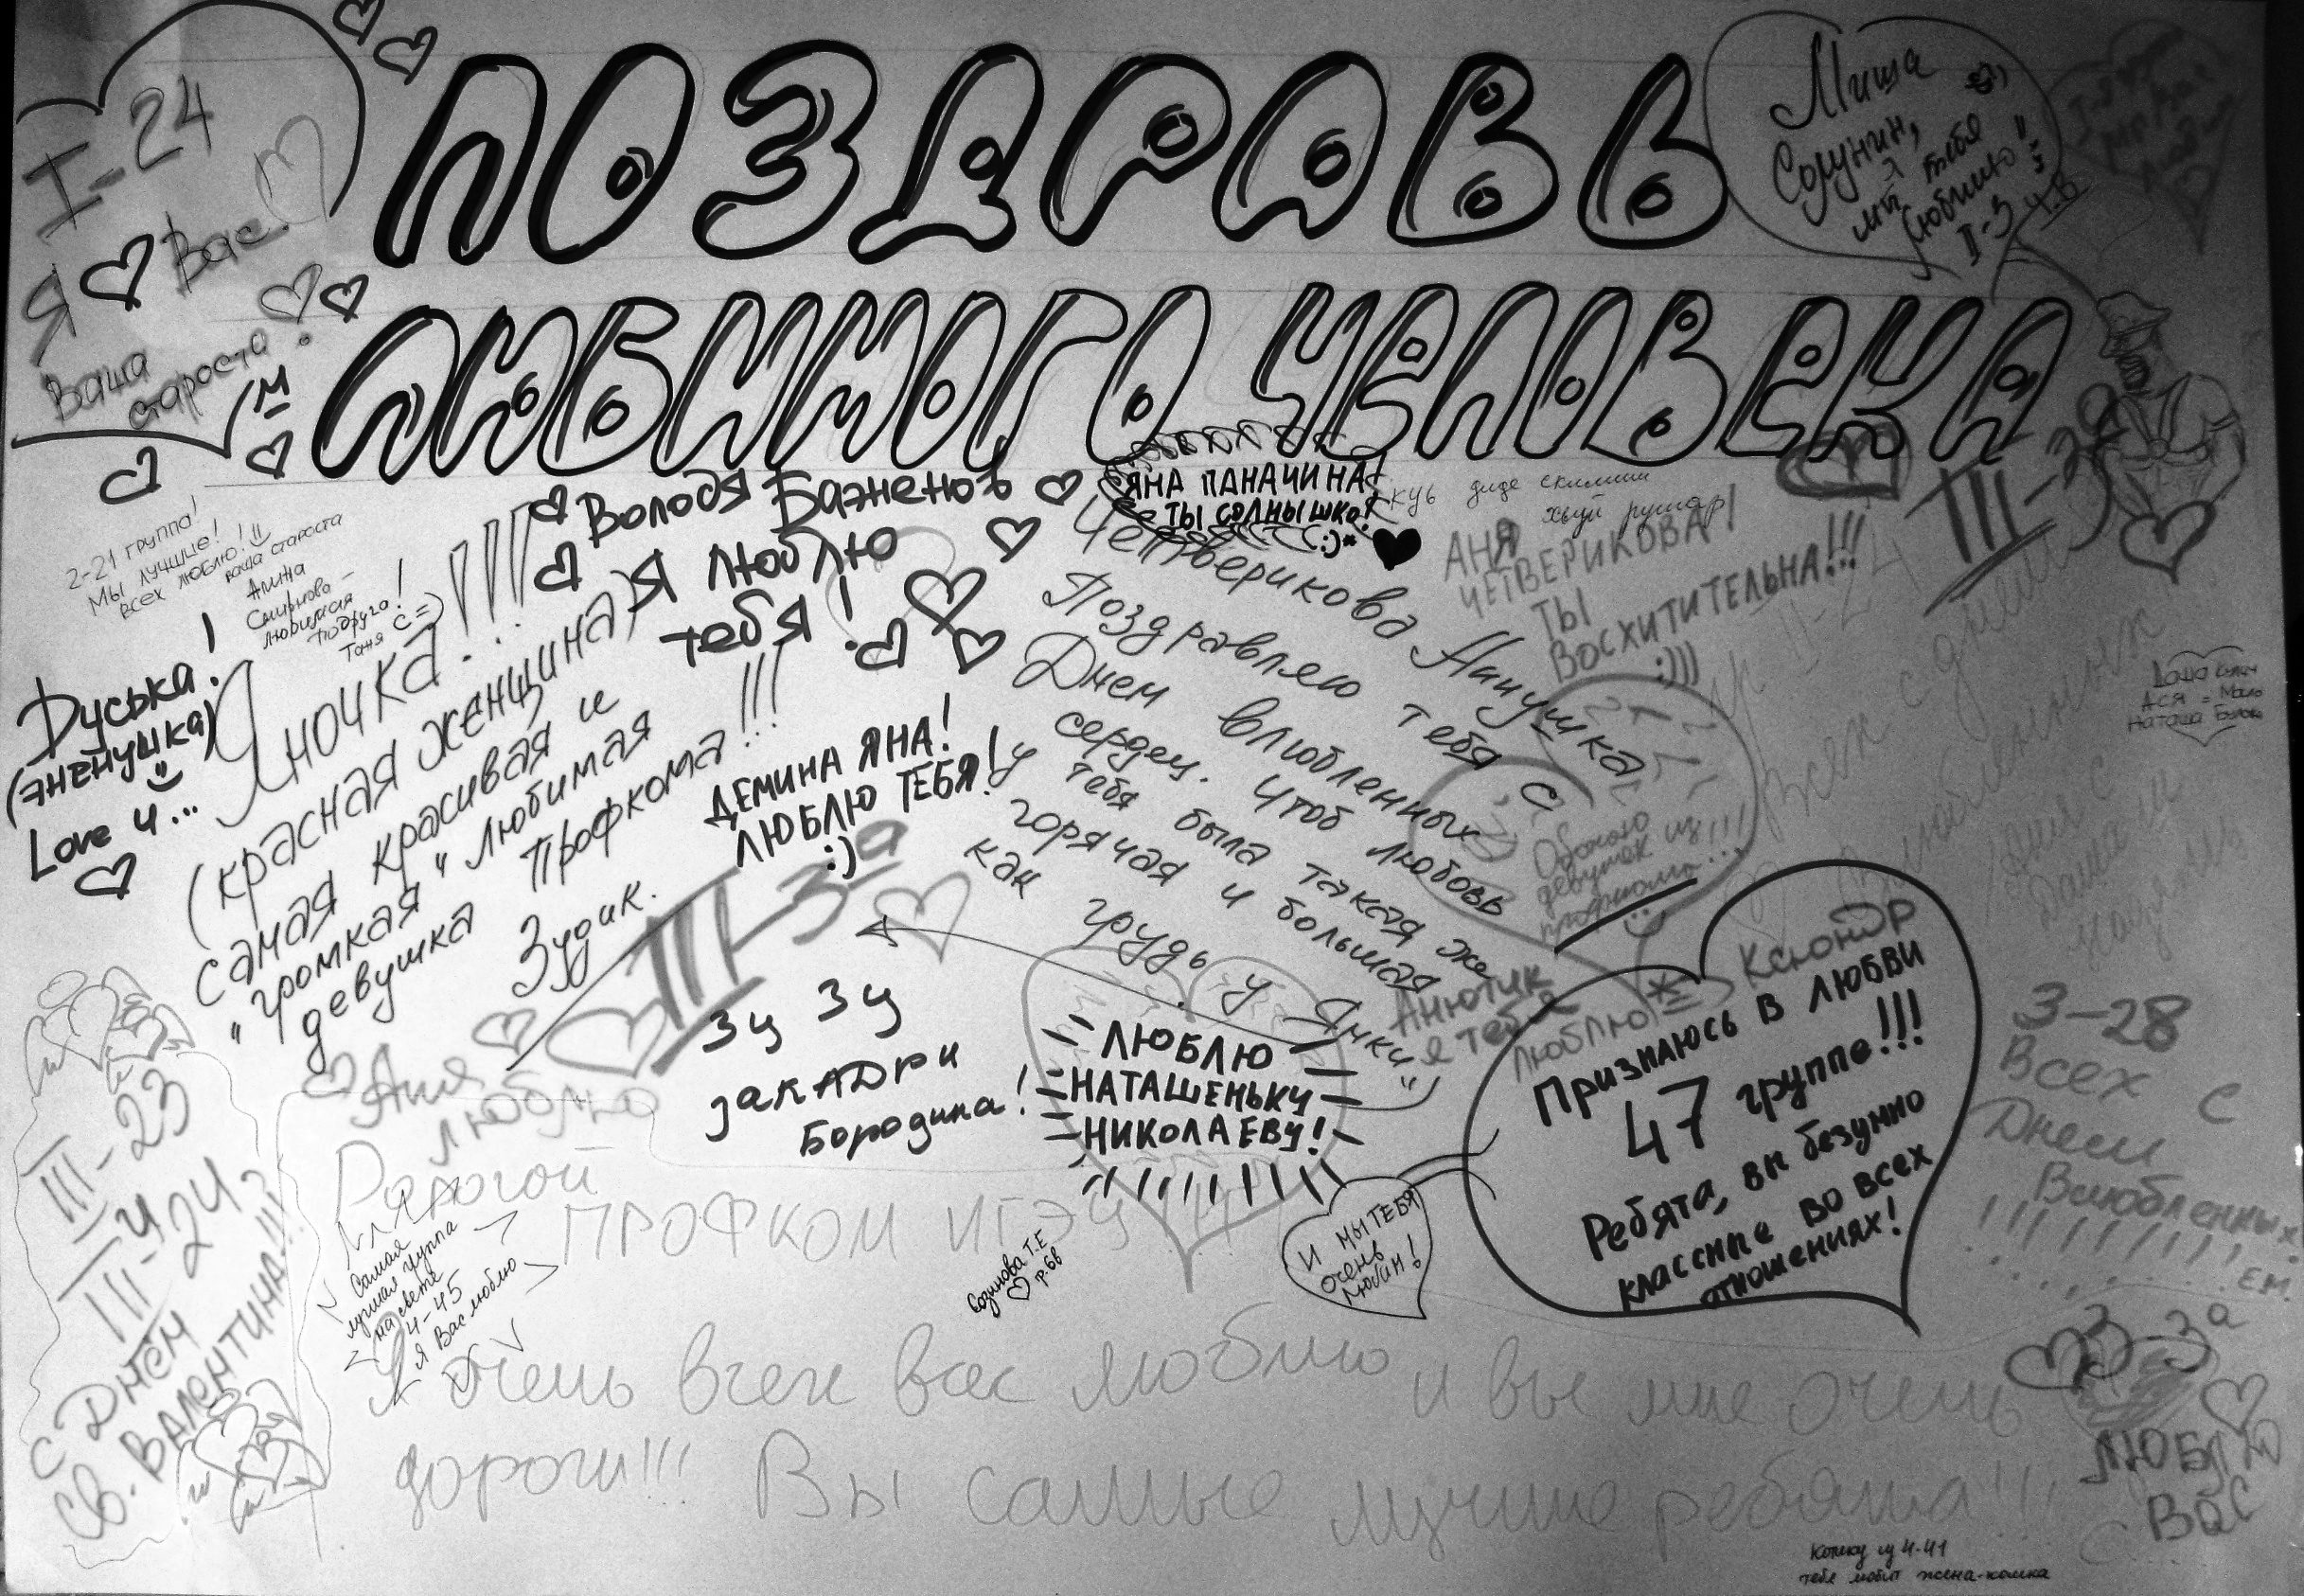 ПОЗДРАВЬ
ЛЮБИМОГО ЧЕЛОВЕКА
I-24
Я ♡ Вас.
Ваша
староста!
Миша
Сорунин,
мы тебя
Я люблю!!
II-3
2-21 группа!
Мы лучшие!
Всех люблю! =)
ваша староста
Алина
Смирнова -
любимая
подруга!
Таня С =)
Дуська!
(жёнушка)
Love u...
Яночка...!!!
(красная женщина)
самая красивая и
"громкая" любимая
девушка Профкома!!!
Зудик.
Володя Баженов
Я люблю
тебя!
ЯНА ПАНАЧИНА!
ТЫ СОЛНЫШКО!
:)*
АНЯ
ЧЕТВЕРИКОВА!
ТЫ
ВОСХИТИТЕЛЬНА!!!
:)))
III-3а
Четверикова Аннушка
Поздравляю тебя с
Днем влюбленных
сердец. Чтоб любовь
у тебя была такая же
горячая и большая
как грудь у Янки"
ДЕМИНА ЯНА!
ЛЮБЛЮ ТЕБЯ!
:)
III-3а
Обожаю
девушек из
профкома...
Всех с днем
Влюбленных
зу зу
закадри
Бородина!
Аня
люблю
ЛЮБЛЮ
НАТАШЕНЬКУ
НИКОЛАЕВУ!
Анютик
я тебя
люблю
Признаюсь в любви
47 группе!!!
Ребята, вы безумно
классные во всех
отношениях!
И МЫ ТЕБЯ
очень
любим!
3-28
Всех с
Днем
Влюбленных.
Е.М.
III-23
III-24
С ДНЁМ
СВ. ВАЛЕНТИНА!!!
Дорогой
ПРОФКОМ ИГЭУ!!!
Самая
лучшая группа
на свете
4-45
Я Вас люблю
Т.Е
Я очень всех вас люблю и вы мне очень
дороги!!! Вы самые лучшие ребята!!!
3-3а
ЛЮБЛЮ
ВАС
4-41
тебя любит жена-кошка